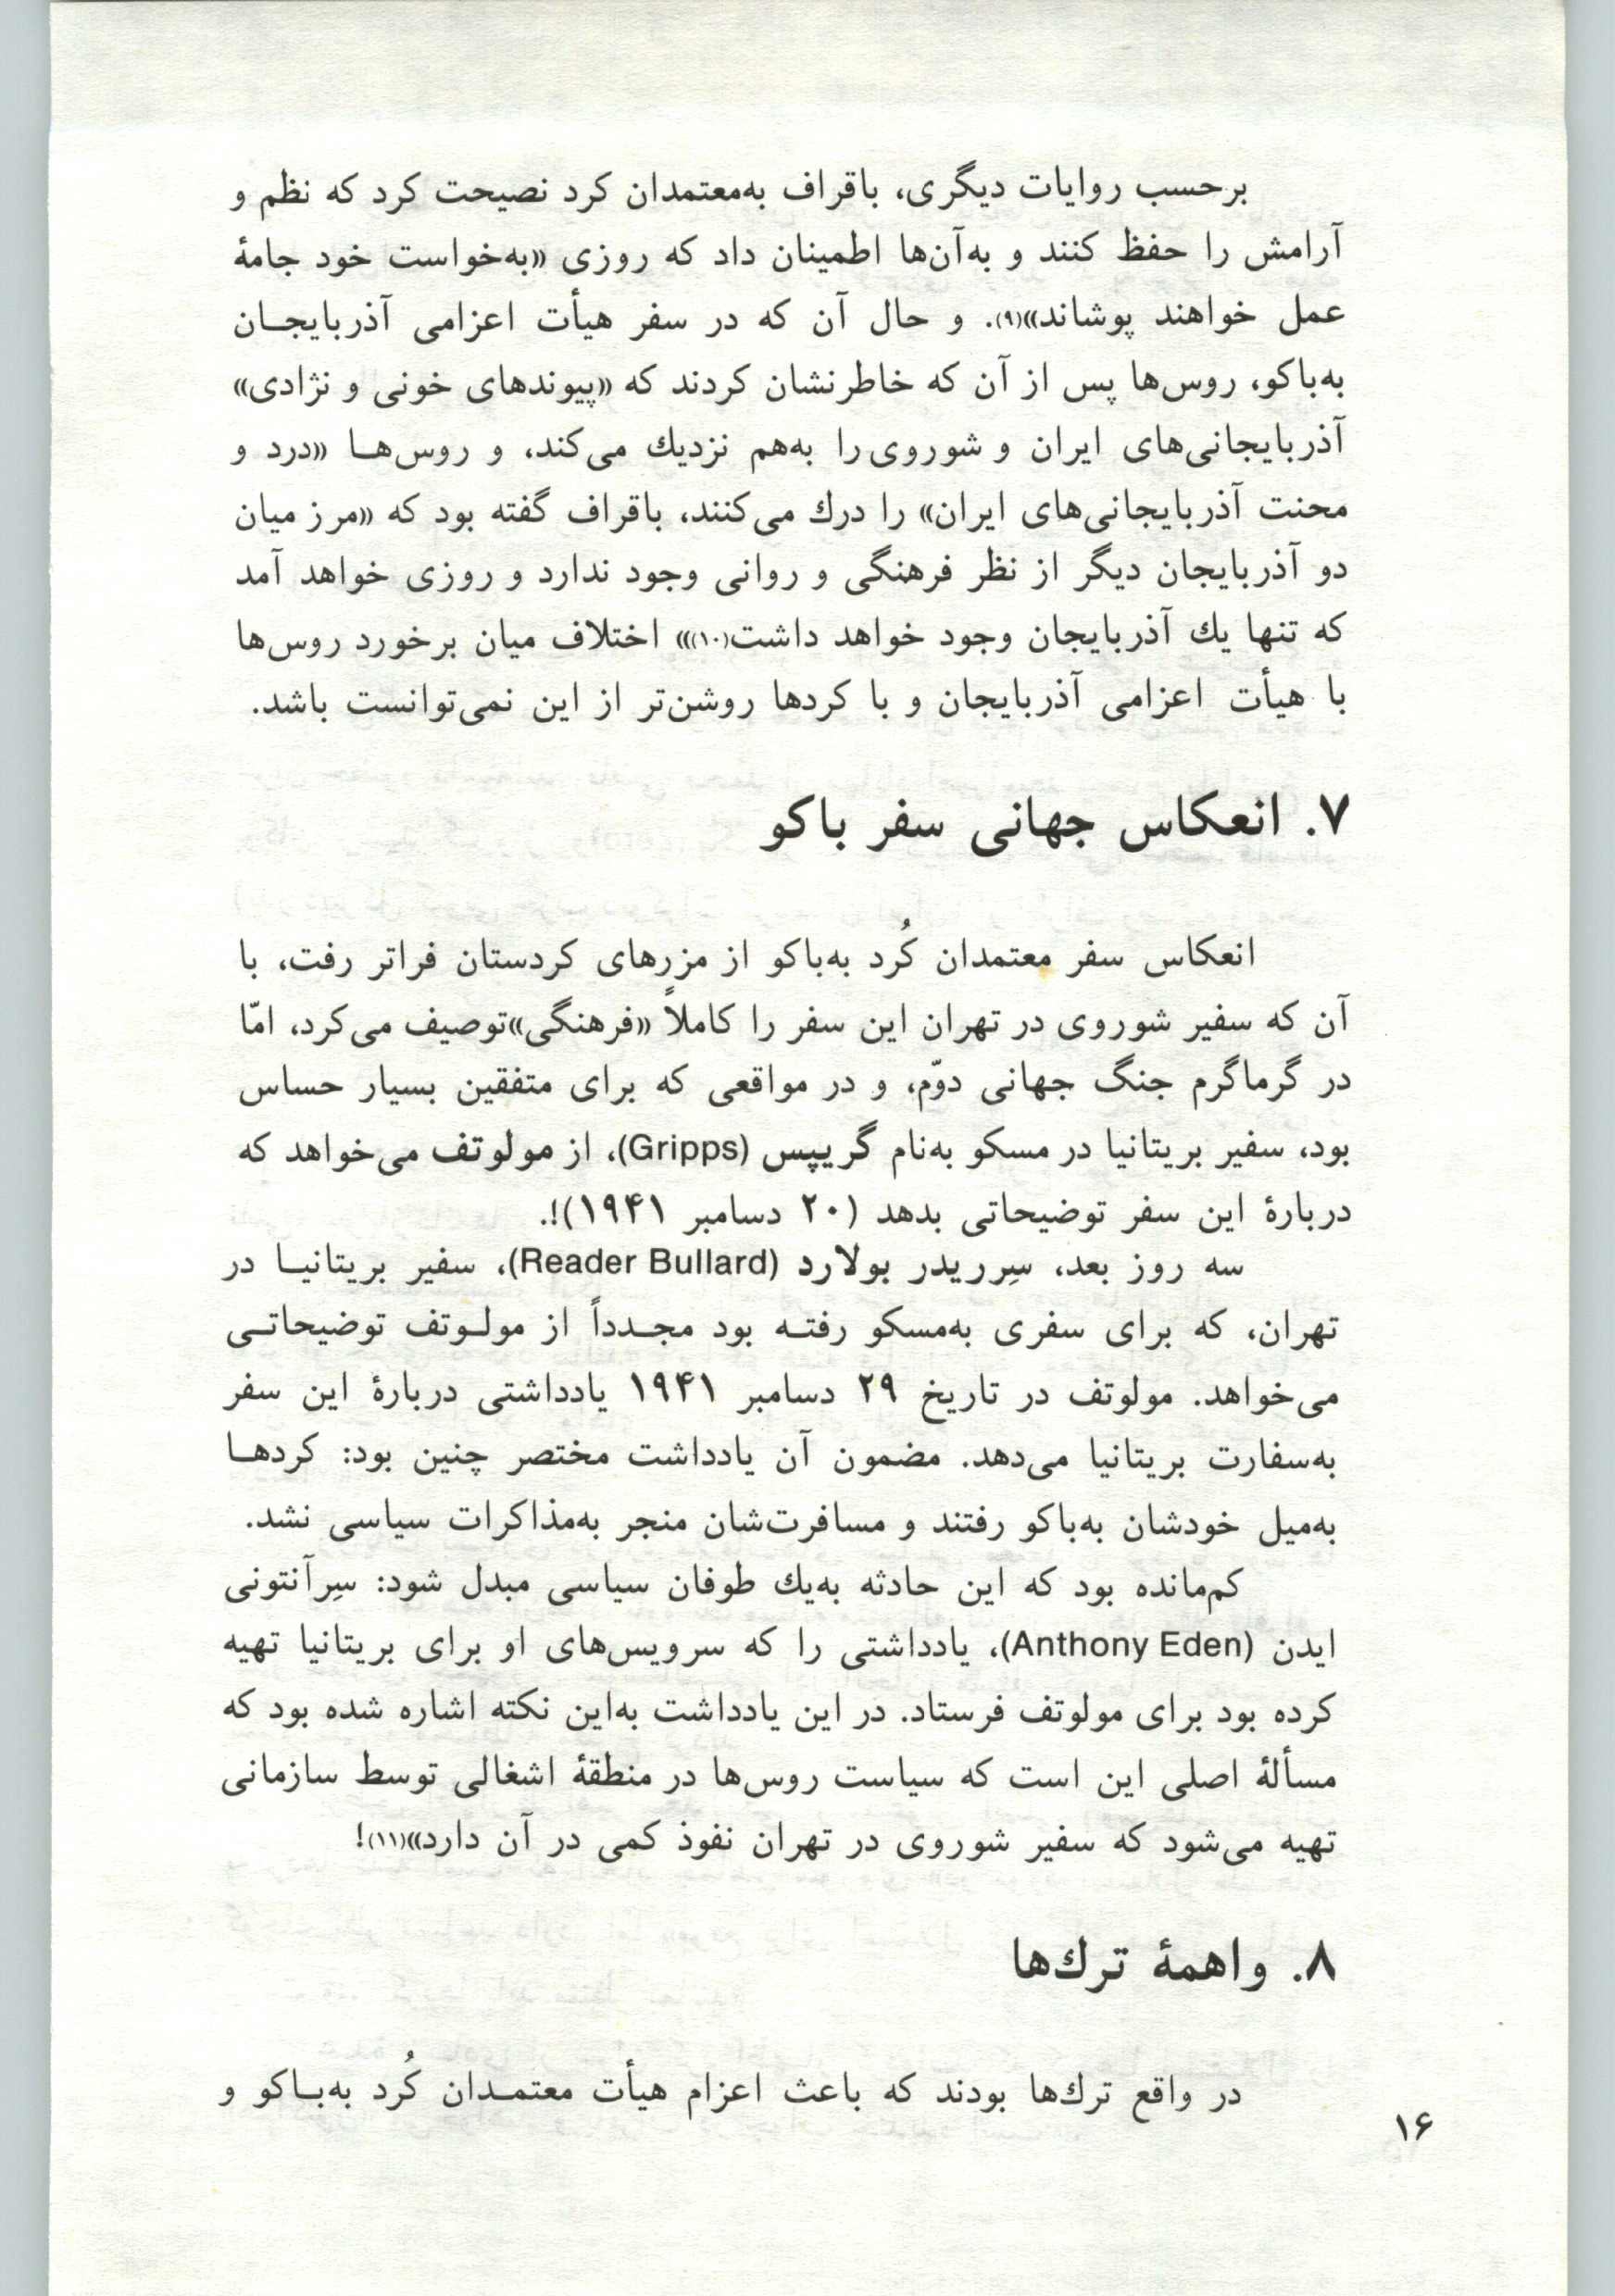 برحسب روایات دیگری، باقراف به‌معتمدان کرد نصیحت کرد که نظم و
آرامش را حفظ کنند و به‌آن‌ها اطمینان داد که روزی «به‌خواست خود جامهٔ
عمل خواهند پوشاند»(۹). و حال آن که در سفر هیأت اعزامی آذربایجــان
به‌باکو، روس‌ها پس از آن که خاطرنشان کردند که «پیوندهای خونی و نژادی»
آذربایجانی‌های ایران و شوروی را به‌هم نزدیك می‌کند، و روس‌هــا «درد و
محنت آذربایجانی‌های ایران» را درك می‌کنند، باقراف گفته بود که «مرز میان
دو آذربایجان دیگر از نظر فرهنگی و روانی وجود ندارد و روزی خواهد آمد
که تنها یك آذربایجان وجود خواهد داشت(۱۰)» اختلاف میان برخورد روس‌ها
با هیأت اعزامی آذربایجان و با کردها روشن‌تر از این نمی‌توانست باشد.
۷. انعکاس جهانی سفر باکو
انعکاس سفر معتمدان کُرد به‌باکو از مزرهای کردستان فراتر رفت، با
آن که سفیر شوروی در تهران این سفر را کاملاً «فرهنگی»توصیف می‌کرد، امّا
در گرماگرم جنگ جهانی دوّم، و در مواقعی که برای متفقین بسیار حساس
بود، سفیر بریتانیا در مسکو به‌نام گریپس (Gripps)، از مولوتف می‌خواهد که
دربارهٔ این سفر توضیحاتی بدهد (۲۰ دسامبر ۱۹۴۱)!.
سه روز بعد، سِرریدر بولارد (Reader Bullard)، سفیر بریتانیــا در
تهران، که برای سفری به‌مسکو رفتــه بود مجــدداً از مولــوتف توضیحاتــی
می‌خواهد. مولوتف در تاریخ ۲۹ دسامبر ۱۹۴۱ یادداشتی دربارهٔ این سفر
به‌سفارت بریتانیا می‌دهد. مضمون آن یادداشت مختصر چنین بود: کردهــا
به‌میل خودشان به‌باکو رفتند و مسافرت‌شان منجر به‌مذاکرات سیاسی نشد.
کم‌مانده بود که این حادثه به‌یك طوفان سیاسی مبدل شود: سِرآنتونی
ایدن (Anthony Eden)، یادداشتی را که سرویس‌های او برای بریتانیا تهیه
کرده بود برای مولوتف فرستاد. در این یادداشت به‌این نکته اشاره شده بود که
مسألهٔ اصلی این است که سیاست روس‌ها در منطقهٔ اشغالی توسط سازمانی
تهیه می‌شود که سفیر شوروی در تهران نفوذ کمی در آن دارد»(۱۱)!
۸. واهمهٔ ترك‌ها
در واقع ترك‌ها بودند که باعث اعزام هیأت معتمــدان کُرد به‌بــاکو و
۱۶